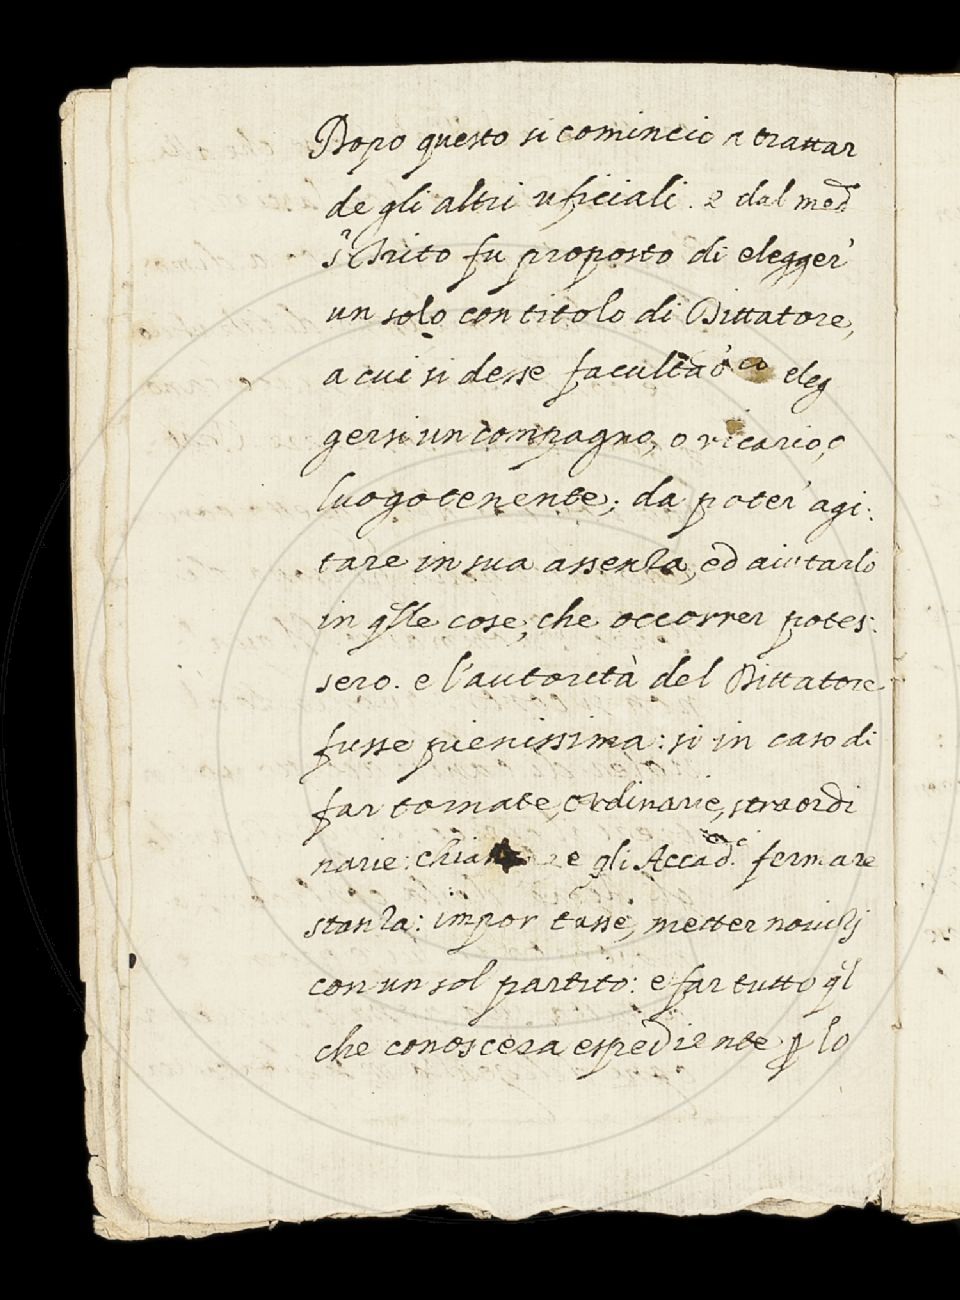 Dopo questo si comincio a trattar
de gli altri uficiali. e dal med
fu proposto di elegger'
un solo con titolo di Dittatore,
a cui si desse facultà di eleg
gersi un compagno, o vicario, o
luogotenente; da poter' agi:
tare in sua assenza, ed aiutarlo
in qlle cose, che occorrer potes:
sero. e l'autorità del Dittatore
fusse pienissima: si in caso di
far tornate, ordinarie, straordi
narie: gli Accad.ci fermare
stanza: impor tasse, metter novizij
con un sol partito: e far tutto ql
che conosceva espediente p lo